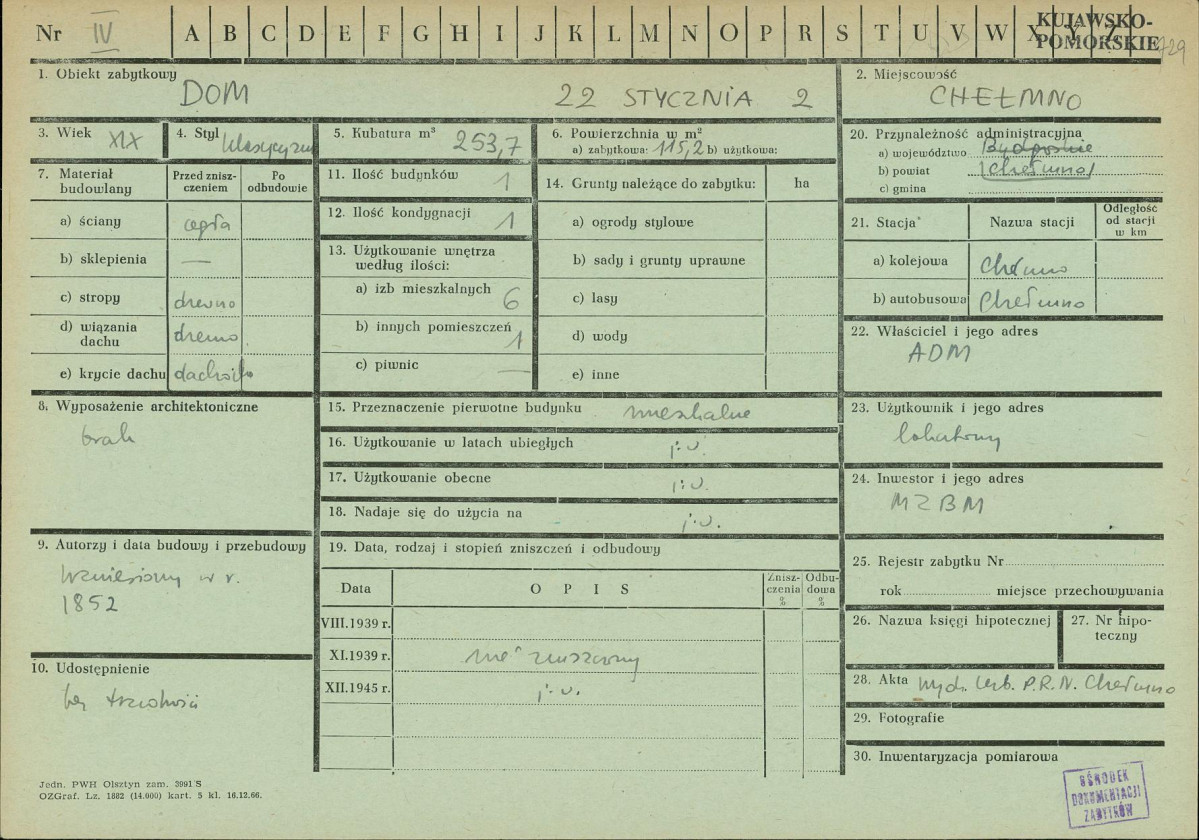 Nr IV A B C D E F G H I J K L M N O P R S T U V W X Y Z KUJAWSKO-
POMORSKIE 729
1. Obiekt zabytkowy
DOM 22 STYCZNIA 2
2. Miejscowość
CHEŁMNO
3. Wiek XIX
4. Styl klasycyzm
5. Kubatura m³ 253,7
6. Powierzchnia w m²
a) zabytkowa: 115,2 b) użytkowa:
7. Materiał
budowlany
Przed znisz-
czeniem
Po
odbudowie
a) ściany cegła
b) sklepienia —
c) stropy drewno
d) wiązania
dachu drewno
e) krycie dachu dachówka
11. Ilość budynków 1
12. Ilość kondygnacji 1
13. Użytkowanie wnętrza
według ilości:
a) izb mieszkalnych 6
b) innych pomieszczeń 1
c) piwnic —
14. Grunty należące do zabytku: ha
a) ogrody stylowe
b) sady i grunty uprawne
c) lasy
d) wody
e) inne
20. Przynależność administracyjna
a) województwo Bydgoskie
b) powiat Chełmno
c) gmina
21. Stacja
Nazwa stacji
Odległość
od stacji
w km
a) kolejowa Chełmno
b) autobusowa Chełmno
22. Właściciel i jego adres
ADM
8. Wyposażenie architektoniczne
brak
15. Przeznaczenie pierwotne budynku mieszkalne
16. Użytkowanie w latach ubiegłych j.w.
17. Użytkowanie obecne j.w.
18. Nadaje się do użycia na j.w.
23. Użytkownik i jego adres
lokatorzy
24. Inwestor i jego adres
MZBM
9. Autorzy i data budowy i przebudowy
wzniesiony w r.
1852
10. Udostępnienie
bez trudności
19. Data, rodzaj i stopień zniszczeń i odbudowy
Data
OPIS
Znisz-
czenia
%
Odbu-
dowa
%
VIII.1939 r.
XI.1939 r. nie zniszczony
XII.1945 r. j.w.
25. Rejestr zabytku Nr
rok miejsce przechowywania
26. Nazwa księgi hipotecznej
27. Nr hipo-
teczny
28. Akta Wydz. Urb. P.R.N. Chełmno
29. Fotografie
30. Inwentaryzacja pomiarowa
Jedn. PWH Olsztyn zam. 3991 S
OZGraf. Lz. 1882 (14.000) kart. 5 kl. 16.12.66.
OŚRODEK
DOKUMENTACJI
ZABYTKÓW